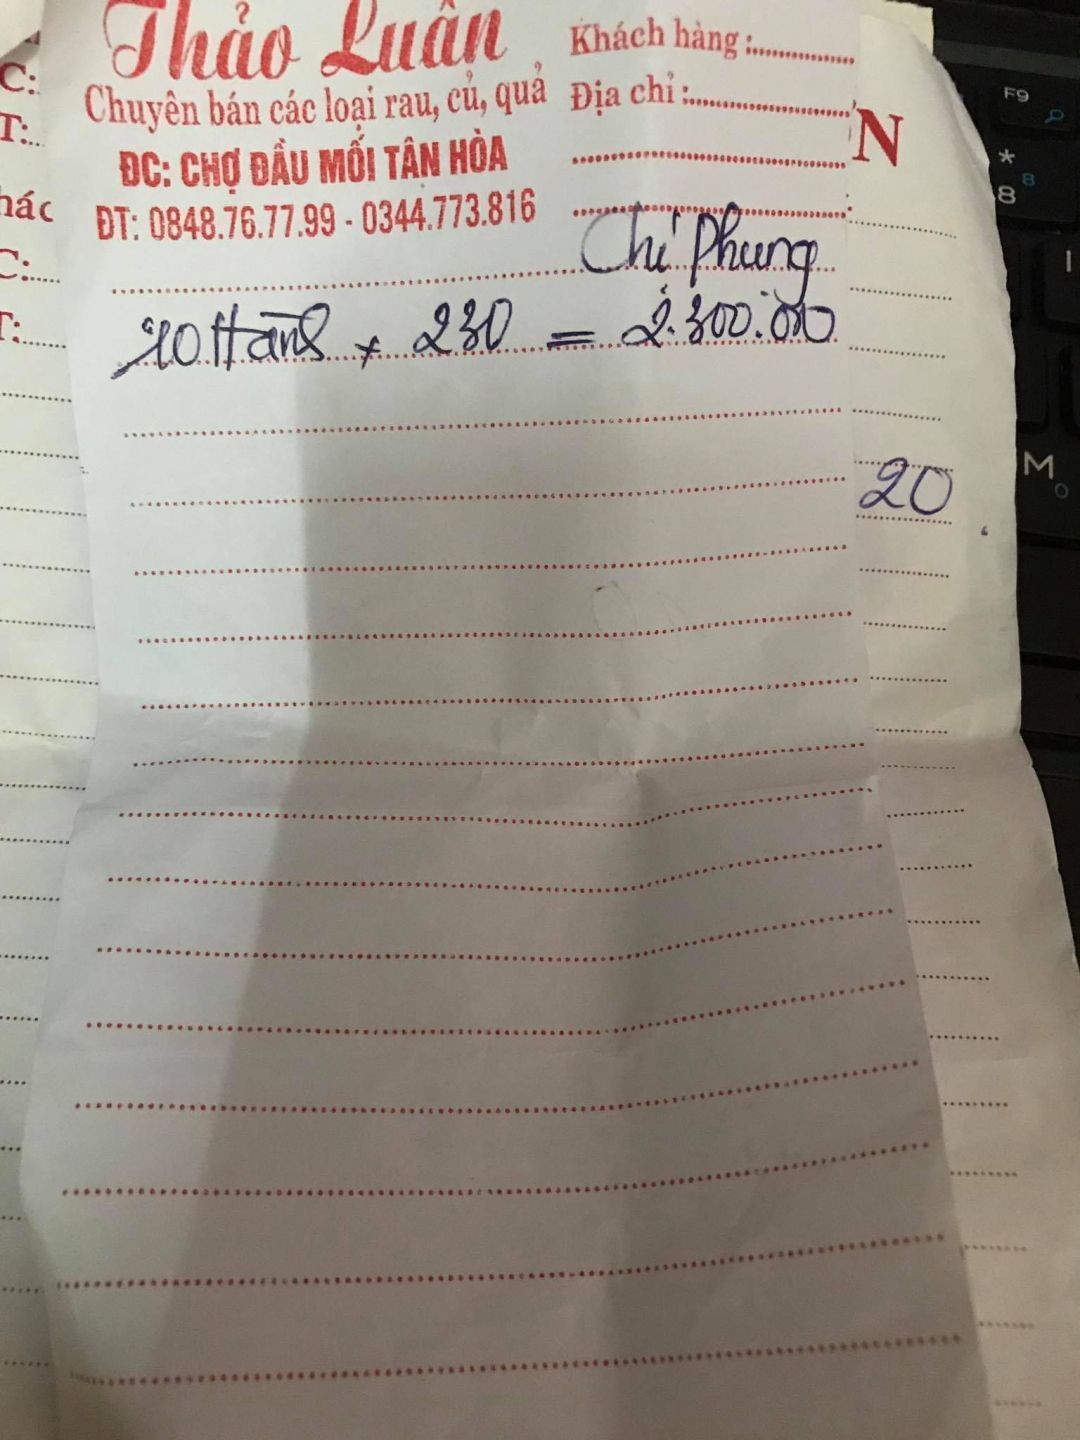 Thảo Luân
Chuyên bán các loại rau, củ, quả
ĐC: CHỢ ĐẦU MỐI TÂN HÒA
ĐT: 0848.76.77.99 - 0344.773.816
Khách hàng :
Địa chỉ :
Chị Phung
10 Hàng x 230 = 2.300.000
C:
T:
hác
C:
T:
N
20
F9
*
8 8
I
M